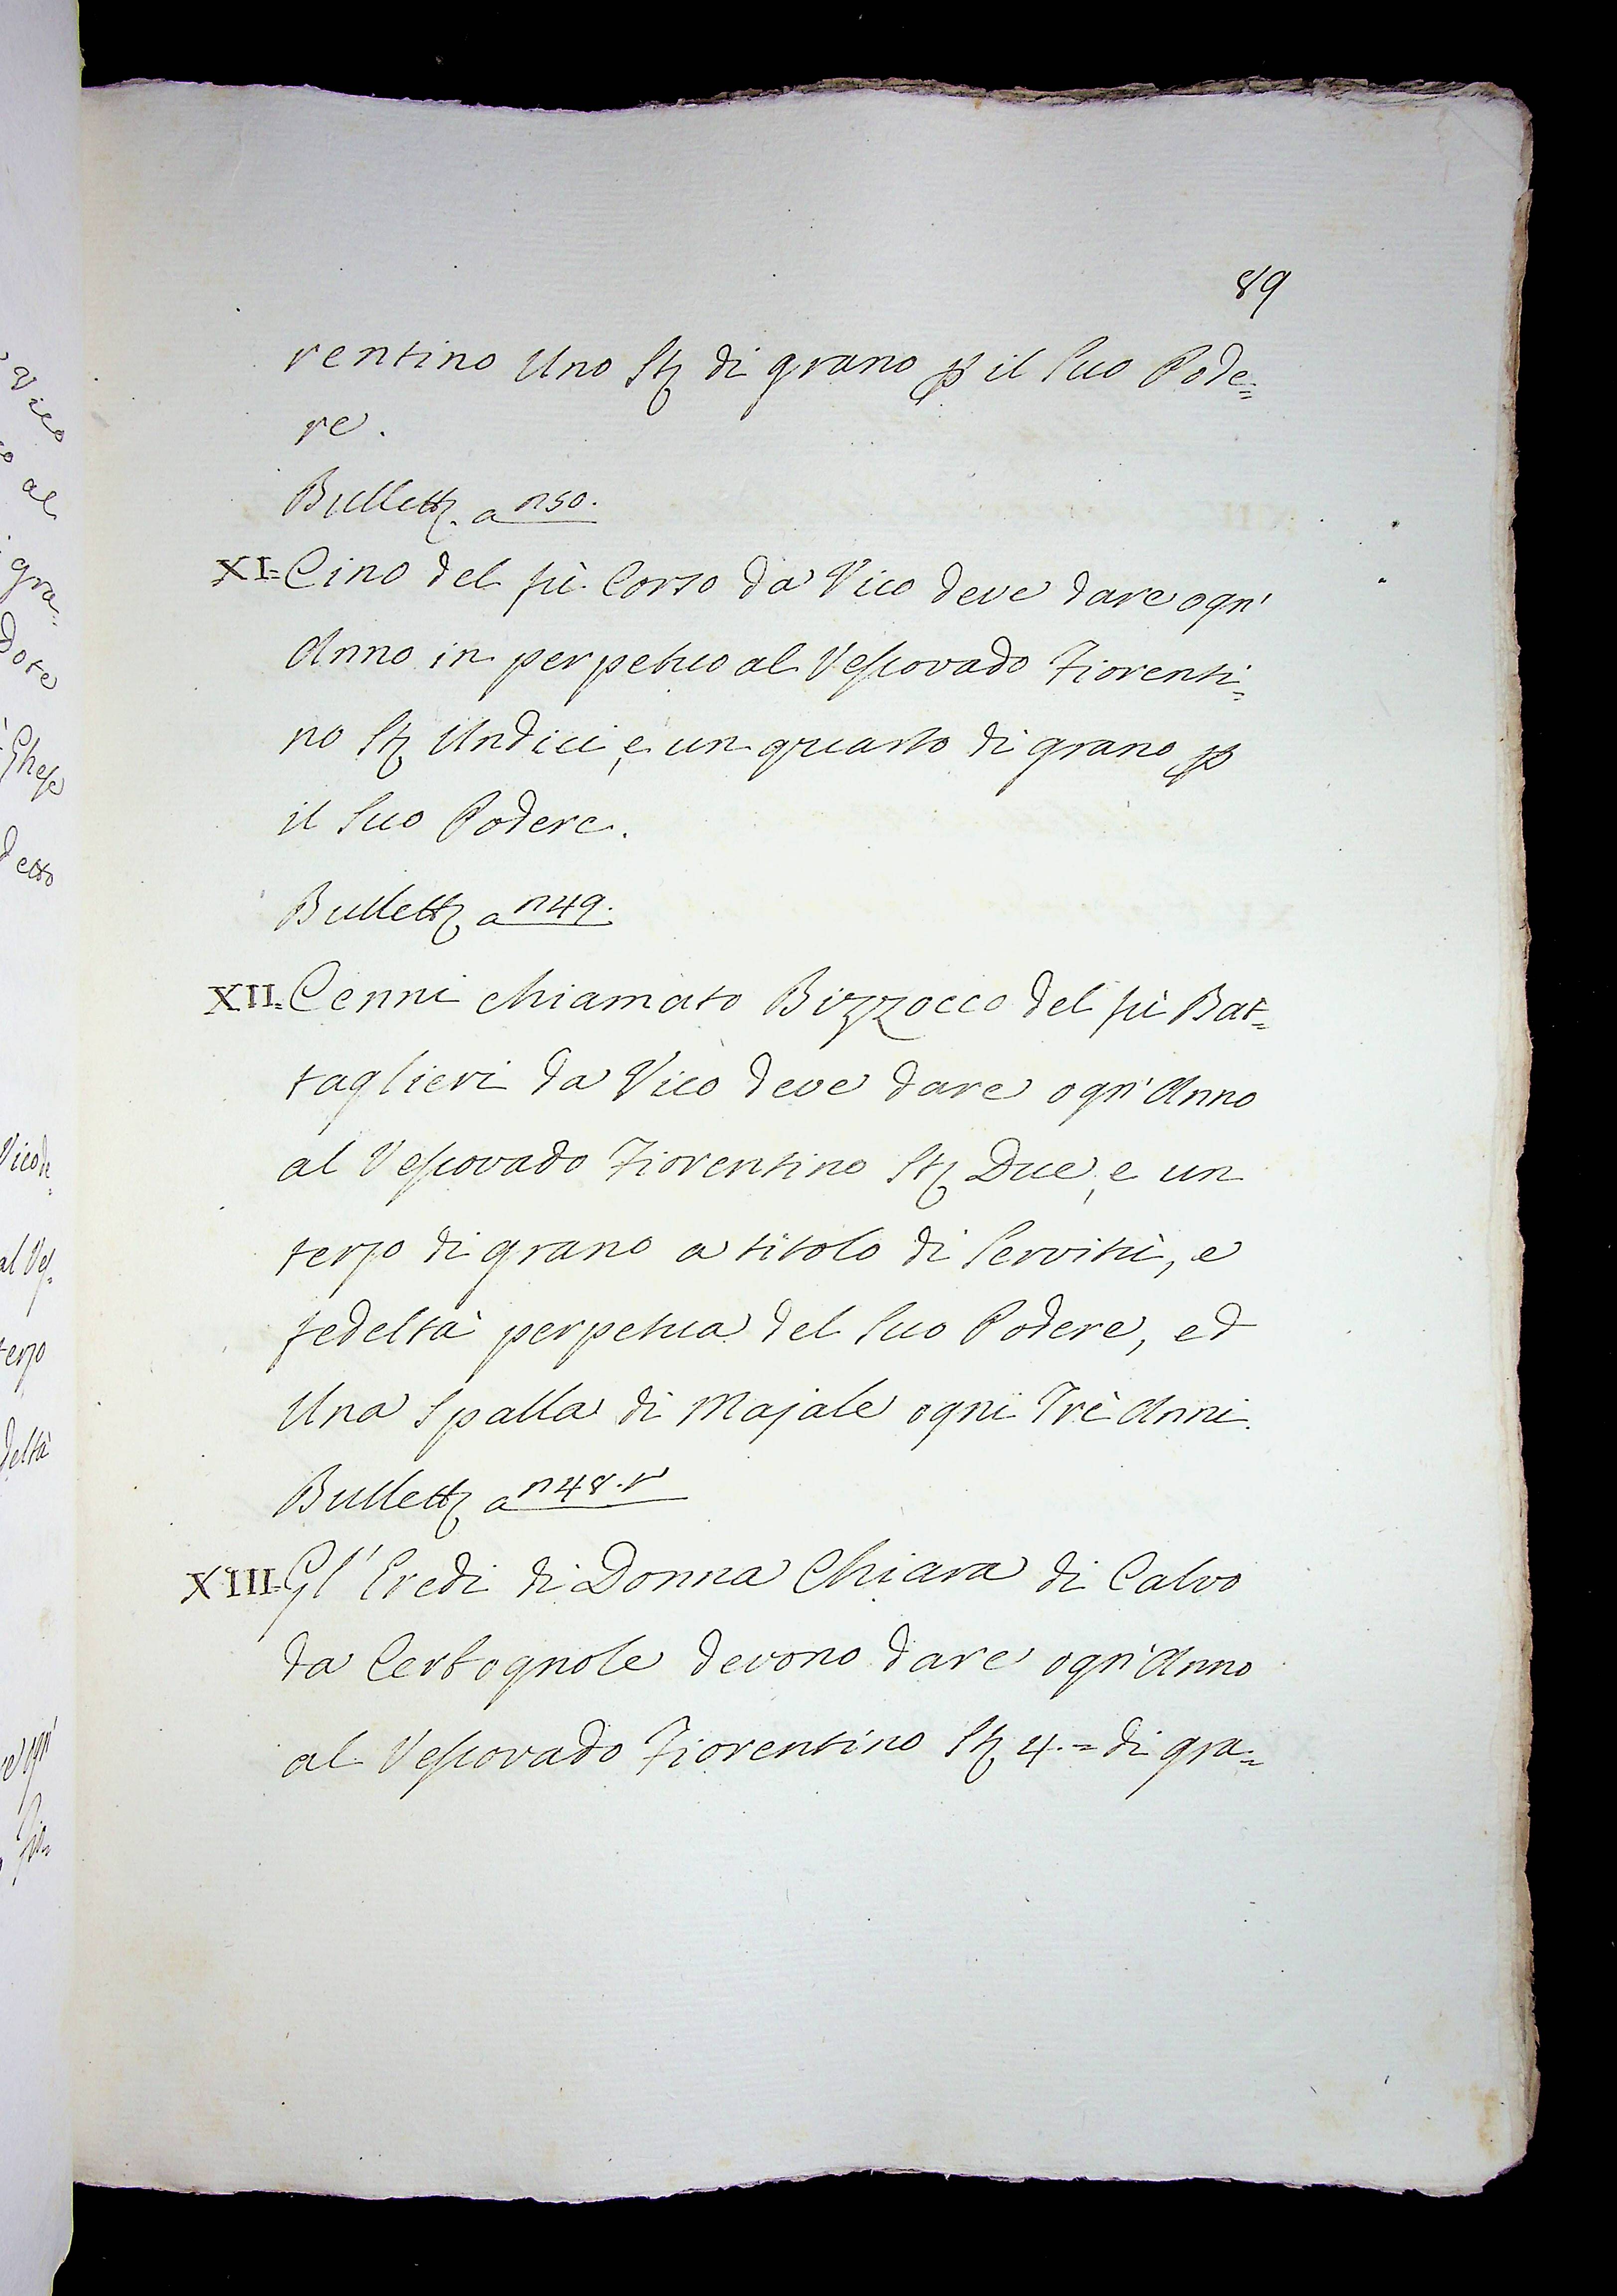 89
rentino Uno St. di grano p il suo Pode=
re.
Bullett. a n 50.
XI= Cino del fù Corso da Vico deve dare ogn'
Anno in perpetuo al Vescovado Fiorenti=
no St. Undici, e un quarto di grano p
il suo Podere.
Bullett. a n 49.
XII= Cenni chiamato Bizzocco del fù Bat=
taglieri da Vico deve dare ogn'Anno
al Vescovado Fiorentino St. Due, e un
terzo di grano a titolo di servitù, e
fedeltà perpetua del suo Podere, ed
Una spalla di Majale ogni Trè Anni.
Bullett. a n 48. r
XIII= Gl'Eredi di Donna Chiara di Calvo
da Cerbognole devono dare ogn'Anno
al Vescovado Fiorentino St. 4.= di gra=